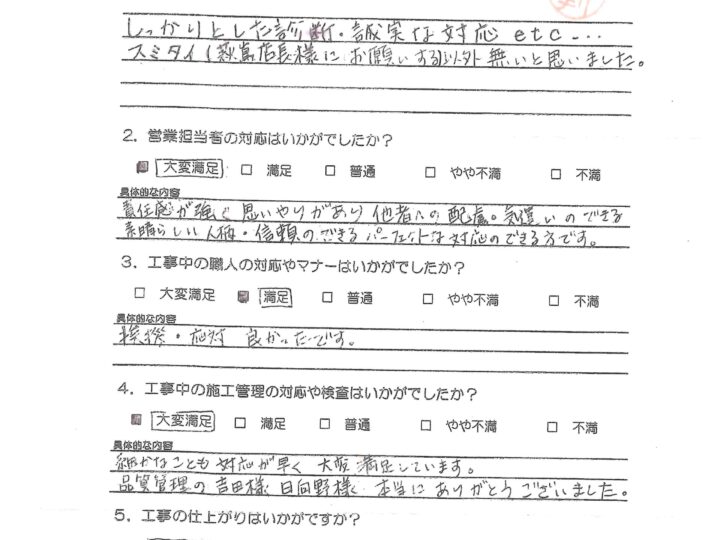 しっかりとした診断・誠実な対応 etc...
スミタイ(萩島店長様にお願いする)以外 無いと思いました。
2．営業担当者の対応はいかがでしたか？
■ 大変満足 □ 満足 □ 普通 □ やや不満 □ 不満
具体的な内容
責任感が強く 思いやりがあり 他者への配慮。気遣いのできる
素晴らしい人柄・信頼のできるパーフェクトな対応のできる方です。
3．工事中の職人の対応やマナーはいかがでしたか？
□ 大変満足 ■ 満足 □ 普通 □ やや不満 □ 不満
具体的な内容
挨拶・応対 良かったです。
4．工事中の施工管理の対応や検査はいかがでしたか？
■ 大変満足 □ 満足 □ 普通 □ やや不満 □ 不満
具体的な内容
細かなことも 対応が早く 大変満足しています。
品質管理の吉田様 日向野様 本当にありがとうございました。
5．工事の仕上がりはいかがですか？